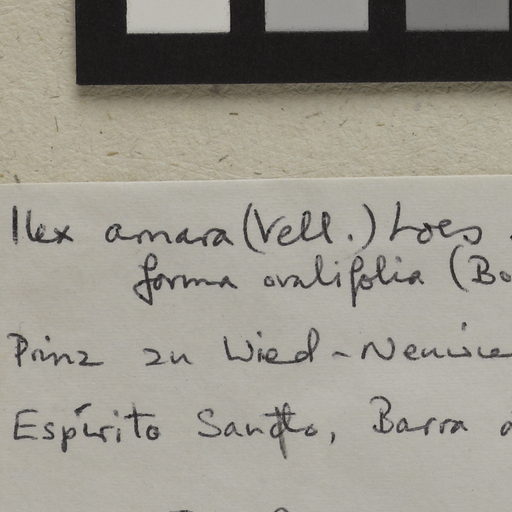 Ilex amara (Vell.) Loes
forma ovalifolia (Bo
Prinz zu Wied-Neuwie
Espírito Santo, Barra d